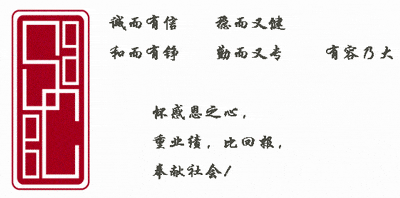 诚而有信 稳而又健
和而有铮 勤而又专 有容乃大
怀感恩之心，
重业绩，比回报，
奉献社会！